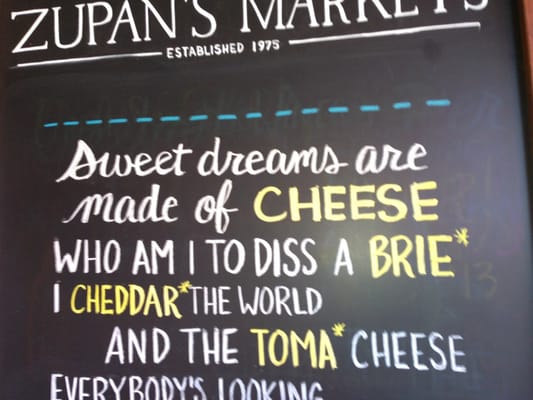 ZUPAN'S MARKETS
ESTABLISHED 1975
Sweet dreams are
made of CHEESE
WHO AM I TO DISS A BRIE*
I CHEDDAR* THE WORLD
AND THE TOMA* CHEESE
EVERYBODY'S LOOKING